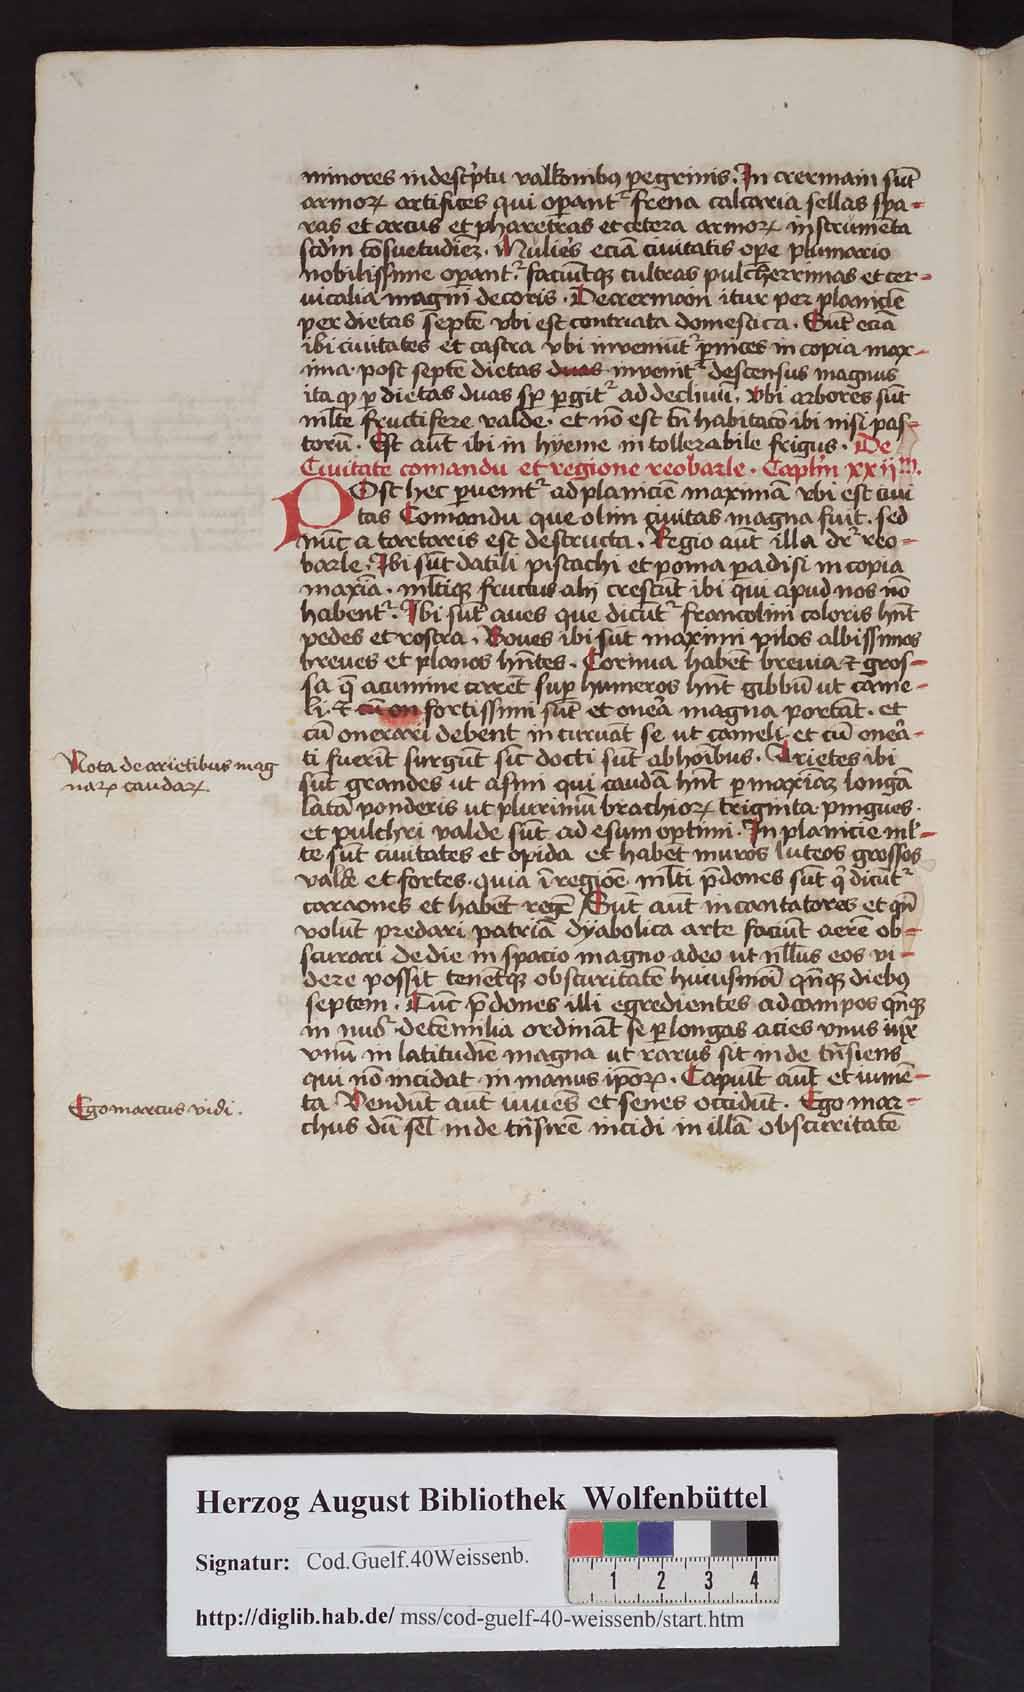 minores indescp̃tu valkonibꝯ pegrinis. In crermain sūt
armoꝝ artifices qui oꝑantᷣ frena calcaria sellas spa-
ras et arcus et pharetras et cetera armoꝝ instrumēta
scd̄m ɔ̄suetudiēꝫ. Mulies̉ eciā ciuitatis oꝑe plumario
nobilissime oꝑantᷣ faciūtqꝫ cultras pulcherrimas et cer-
uicalia magni decoris. De crermain itur per planiciē
per dietas septē vbi est contrata domestica. Sūt eciā
ibi ciuitates et castra vbi inueniūtᷣ ꝑnices in copia max-
ima. post septē dietas duas inueitᷣ descensus magnus
ita qꝫ ꝑ dietas duas sꝑ ꝑgitᷣ ad decliuū, vbi arbores sūt
ml̄te fructifere valde. et nō est tn̄ habitatō ibi nisi pas-
torū. Est aūt ibi in hyeme intollerabile frigus. De
Ciuitate comandu et regione reobarle. Capl̄m xxijᵐ.
POst hec ꝑuenitᷣ ad planiciē maximā vbi est ciui
tas Comandu que olim ciuitas magna fuit. sed
nūc a tartaris est destructa. Regio aūt illa drᷣ reo-
barle. Ibi sūt datili pistachi et poma ꝑadisi in copia
maxīa. ml̄tiqꝫ fructus alij crescūt ibi qui apud nos nō
habentᷣ. Ibi sūt aues que dicūtᷣ francolini coloris hn̄t
pedes et rostra. Boues ibi sūt maximi pilos albissimos
breues et planos hn̄tes. Cornua habēt breuia ⁊ gros-
sa q̄ acumine carēt suꝑ humeros hn̄t gibbū ut came-
li. ⁊ cū on fortissimi sūt et oneā magna portāt. et
cū onerari debent incuruāt se ut cameli et cū oneā-
ti fuerīt surgūt sic docti sūt ab hoībus. Arietes ibi
sūt grandes ut asini qui caudā hn̄t ꝑmaxīaꝫ longā
latā ponderis ut plurimū brachioꝝ triginta. pingues.
et pulchri valde sūt ad esum optimi. In planicie ml̉-
te sūt ciuitates et opida et habēt muros luteos grossos
valde et fortes. quia ī regiōe ml̄ti p̄dones sūt q̇ dicūtᷣ
caraones et habēt regē Sūt aūt incantatores et qn̄
volūt predari patriā dyabolica arte faciūt aerē ob-
scurari de die in spacio magno adeo ut nll̄us eos vi-
dere possit tenētqꝫ obscuritatē huiusmōi qn̄qꝫ diebꝯ
septem. Tūc p̄dones illi egredientes ad campos qn̄qꝫ
in nūo decē milia ordināt se ꝑ longas acies vnus iux
vnū in latitudīe magna ut rarus sit inde tn̄siens
qui nō incidat in manus ip̄oꝝ. Capiūt aūt et iumē-
ta Vendūt aūt iuuēs et senes occidūt. Ego mar-
chus dū sel̄ inde tn̄sirē incidi in illā obscuritatē
Nota de arietibus mag
naꝝ caudaꝝ
Ego marcus vidi.
Herzog August Bibliothek Wolfenbüttel
Signatur: Cod.Guelf.40Weissenb.
1 2 3 4
http://diglib.hab.de/ mss/cod-guelf-40-weissenb/start.htm